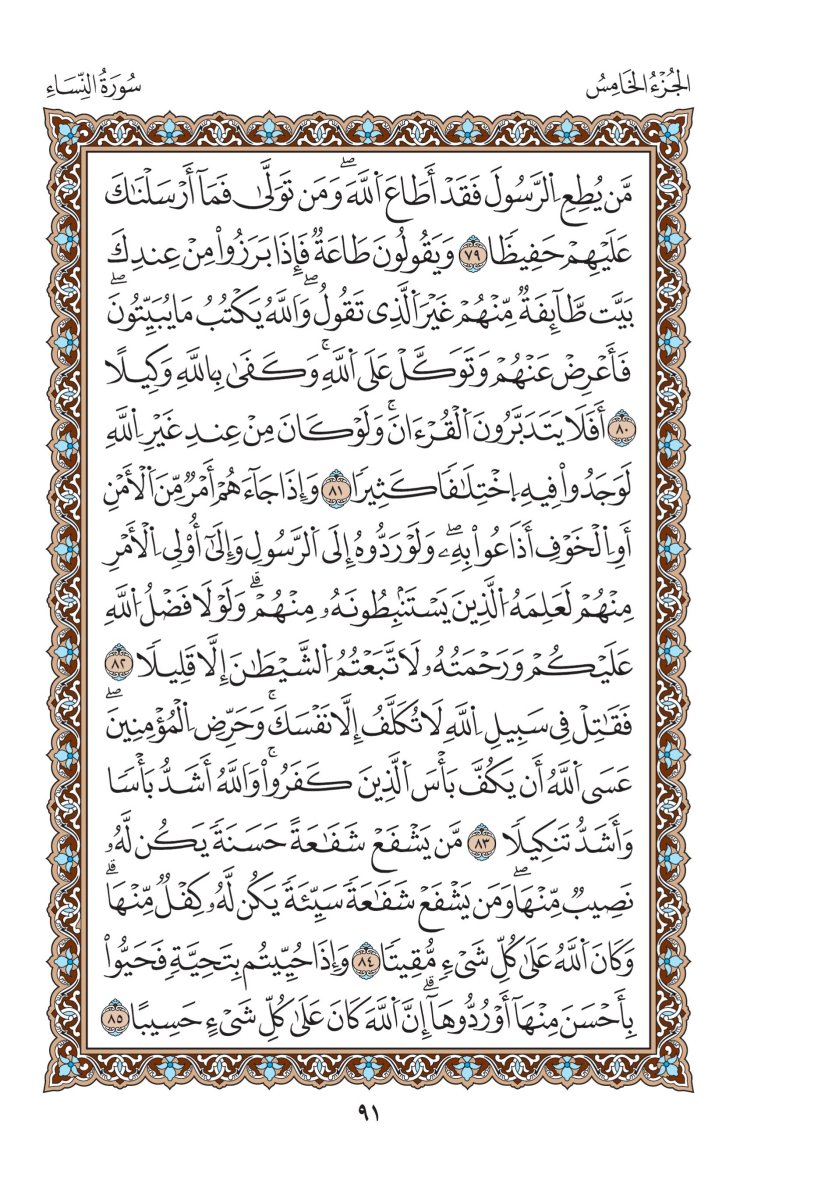 الجُزْءُ الخَامِسُ
سُورَةُ النِّسَاءِ
مَّن يُطِعِ اِ۬لرَّسُولَ فَقَدْ أَطَاعَ اَ۬للَّهَۖ وَمَن تَوَلَّىٰ فَمَآ أَرْسَلْنَٰكَ
عَلَيْهِمْ حَفِيظٗا ٧٩ وَيَقُولُونَ طَاعَةٞ فَإِذَا بَرَزُواْ مِنْ عِندِكَ
بَيَّت طَّآئِفَةٞ مِّنْهُمْ غَيْرَ اَ۬لَّذِى تَقُولُۖ وَاللَّهُ يَكْتُبُ مَا يُبَيِّتُونَۖ
فَأَعْرِضْ عَنْهُمْ وَتَوَكَّلْ عَلَى اَ۬للَّهِۚ وَكَفَىٰ بِاللَّهِ وَكِيلًا
٨٠ أَفَلَا يَتَدَبَّرُونَ اَ۬لْقُرْءَانَۚ وَلَوْ كَانَ مِنْ عِندِ غَيْرِ اِ۬للَّهِ
لَوَجَدُواْ فِيهِ اِ۪خْتِلَٰفٗا كَثِيرٗا ٨١ وَإِذَا جَآءَهُمْ أَمْرٞ مِّنَ اَ۬لْأَمْنِ
أَوِ اِ۬لْخَوْفِ أَذَاعُواْ بِهِۦۖ وَلَوْ رَدُّوهُ إِلَى اَ۬لرَّسُولِ وَإِلَىٰٓ أُوْلِى اِ۬لْأَمْرِ
مِنْهُمْ لَعَلِمَهُ اُ۬لَّذِينَ يَسْتَنۢبِطُونَهُۥ مِنْهُمْۗ وَلَوْلَا فَضْلُ اُ۬للَّهِ
عَلَيْكُمْ وَرَحْمَتُهُۥ لَاتَّبَعْتُمُ اُ۬لشَّيْطَٰنَ إِلَّا قَلِيلٗا ٨٢
فَقَٰتِلْ فِى سَبِيلِ اِ۬للَّهِ لَا تُكَلَّفُ إِلَّا نَفْسَكَۚ وَحَرِّضِ اِ۬لْمُؤْمِنِينَۖ
عَسَى اَ۬للَّهُ أَن يَكُفَّ بَأْسَ اَ۬لَّذِينَ كَفَرُواْۚ وَاللَّهُ أَشَدُّ بَأْسٗا
وَأَشَدُّ تَنكِيلٗا ٨٣ مَّن يَشْفَعْ شَفَٰعَةً حَسَنَةٗ يَكُن لَّهُۥ
نَصِيبٞ مِّنْهَاۖ وَمَن يَشْفَعْ شَفَٰعَةٗ سَيِّئَةٗ يَكُن لَّهُۥ كِفْلٞ مِّنْهَاۗ
وَكَانَ اَ۬للَّهُ عَلَىٰ كُلِّ شَىْءٖ مُّقِيتٗا ٨٤ وَإِذَا حُيِّيتُم بِتَحِيَّةٖ فَحَيُّواْ
بِأَحْسَنَ مِنْهَآ أَوْ رُدُّوهَآۗ إِنَّ اَ۬للَّهَ كَانَ عَلَىٰ كُلِّ شَىْءٍ حَسِيبًا ٨٥
٩١